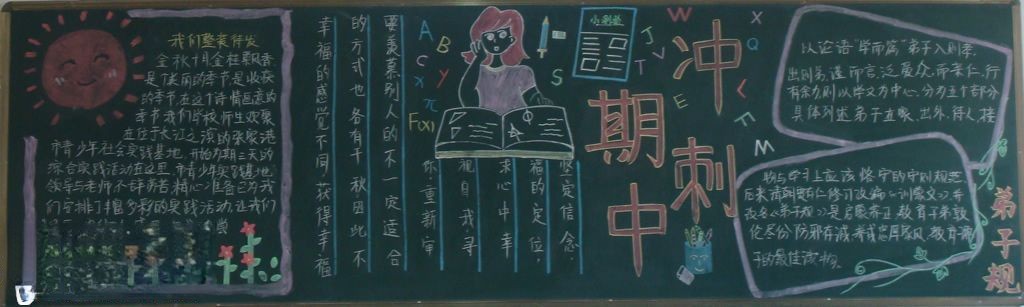 我们整装待发
金秋十月金桂飘香
是佳丽的季节是收获
的季节在这个诗情画意的
季节我们的校师生欢聚
在位于长江之滨的张家港
市青少年社会实践基地,开始为期三天的
综合实践活动在这里,市青少年实践基地
领导与老师不辞劳苦,精心准备已为我
们安排了丰富多彩的实践活动,让我们
要羡慕别人的不一定适合
的方式也各有千秋因此不
幸福的感觉不同获得幸福
坚定信念
福的定位,
求心中幸
视自我寻
你重新审
A
B
C
X
y
π
F(x)
S
小刺激
J
T
V
W
E
X
Q
L
F
M
冲刺
期中
以论语"学而篇"弟子入则孝,
出则弟,谨而言,泛爱众,而亲仁,行
有余力则以学文为中心,分为五个部分
具体列述弟子在家、出外、待人、接
物与学习上应该恪守的守则规范
后来清朝贾存仁修订改编《训蒙文》,并
改名《弟子规》是启蒙养正,教育子弟敦
伦尽份防邪存诚,养成忠厚家风,教育弟
子的最佳读物。
弟子规